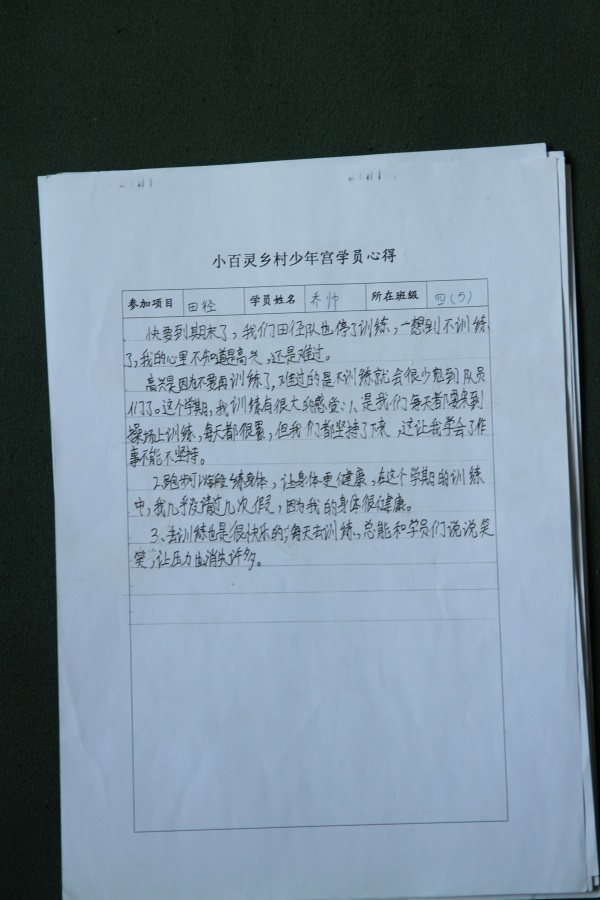 小百灵乡村少年宫学员心得
参加项目 田径 学员姓名 乔帅 所在班级 四(5)
快要到期末了，我们田径队也停了训练，一想到不训练
了，我的心里不知道是高兴，还是难过。
高兴是因为不要再训练了，难过的是不训练就会很少看到队员
们了。这个学期，我训练有很大的感觉：1、是我们每天都要来到
操场上训练，每天都很累，但我们都坚持了下来，这让我学会了作
事不能不坚持。
2、跑步可以锻炼身体，让身体更健康，在这个学期的训练
中，我几乎没请过几次假，因为我的身体很健康。
3、去训练也是很快乐的，每天去训练，总能和学员们说说笑
笑，让压力也消失许多。